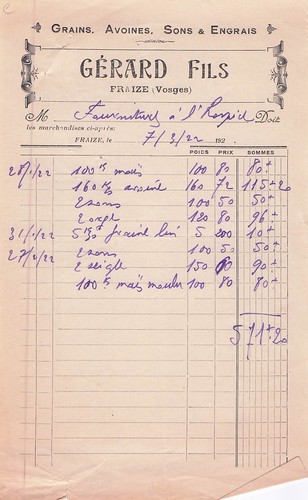 GRAINS, AVOINES, SONS & ENGRAIS
GÉRARD FILS
FRAIZE (Vosges)
M Fourniture à l'Hospice Doit
les marchandises ci-après:
FRAIZE, le 7/3/22 192
POIDS PRIX SOMMES
28/1/22 100 ks maïs 100 80 80 f
160 ks avoine 160 72 115 f 20
2 sons 100 50 50 f
2 orge 120 80 96 f
31/1/22 5 ks farine lin 5 200 10 f
27/2/22 2 sons 100 50 50 f
2 seigle 150 60 90 f
100 ks maïs moulu 100 80 80 f
571 f 20